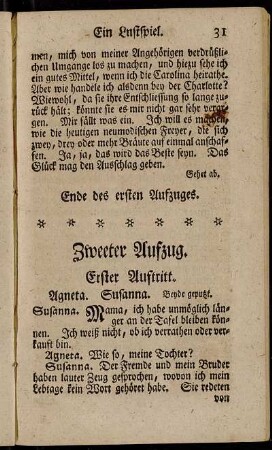 Ein Lustspiel. 31
men, mich von meiner Angehörigen verdrüßli-
chen Umgange los zu machen, und hiezu sehe ich
ein gutes Mittel, wenn ich die Carolina heirathe.
Aber wie handele ich alsdenn bey der Charlotte?
Wiewohl, da sie ihre Entschliessung so lange zu-
rück hält: könnte sie es mir nicht gar sehr verar-
gen. Mir fällt was ein. Ich will es machen,
wie die heutigen neumodischen Freyer, die sich
zwey, drey oder mehr Bräute auf einmal anschaf-
fen. Ja, ja, das wird das Beste seyn. Das
Glück mag den Ausschlag geben.
Gehet ab.
Ende des ersten Aufzuges.
* * * * * * *
Zweeter Aufzug.
Erster Auftritt.
Agneta. Susanna. Beyde geputzt.
Susanna. Mama, ich habe unmöglich län-
ger an der Tafel bleiben kön-
nen. Ich weiß nicht, ob ich verrathen oder ver-
kauft bin.
Agneta. Wie so, meine Tochter?
Susanna. Der Fremde und mein Bruder
haben lauter Zeug gesprochen, wovon ich mein
Lebtage kein Wort gehöret habe. Sie redeten
von